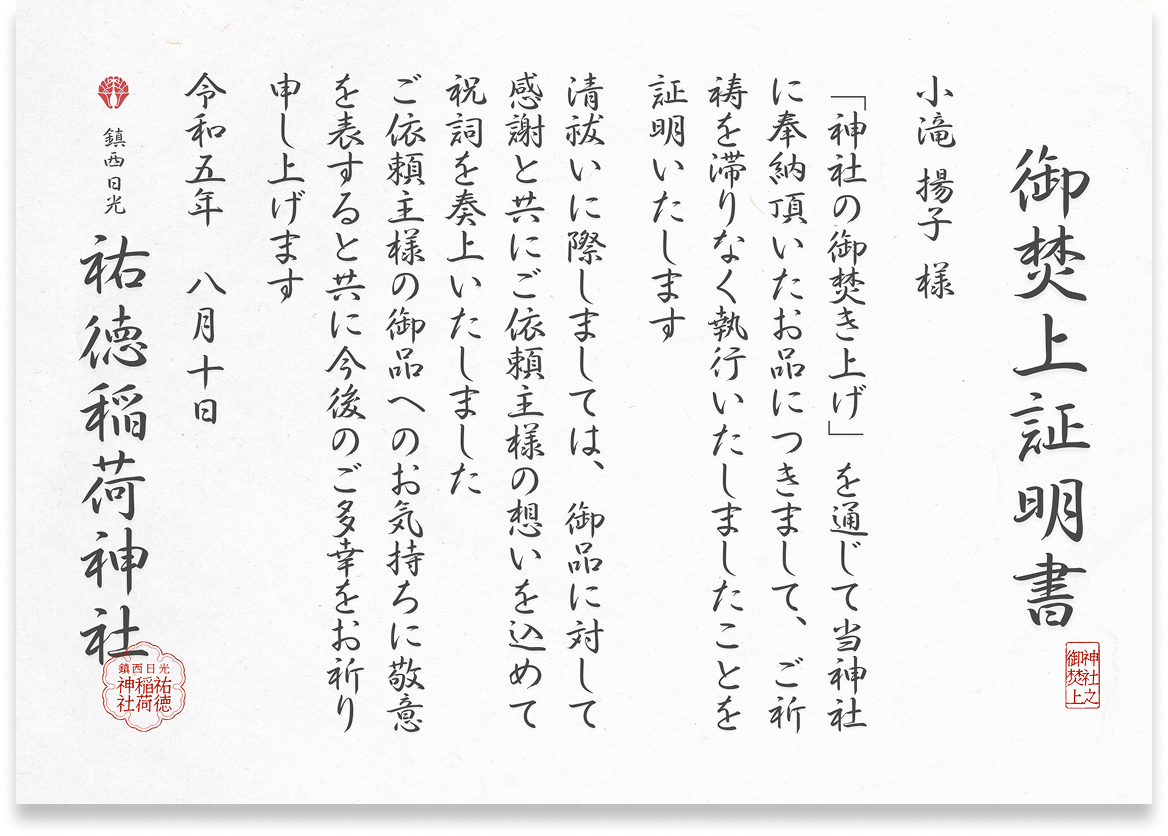 御焚上証明書
神社之
御焚上
小滝 揚子 様
「神社の御焚き上げ」を通じて当神社
に奉納頂いたお品につきまして、ご祈
祷を滞りなく執行いたしましたことを
証明いたします
清祓いに際しましては、御品に対して
感謝と共にご依頼主様の想いを込めて
祝詞を奏上いたしました
ご依頼主様の御品へのお気持ちに敬意
を表すると共に今後のご多幸をお祈り
申し上げます
令和五年 八月十日
鎮西日光 祐徳稲荷神社
鎮西日光
祐徳
稲荷
神社